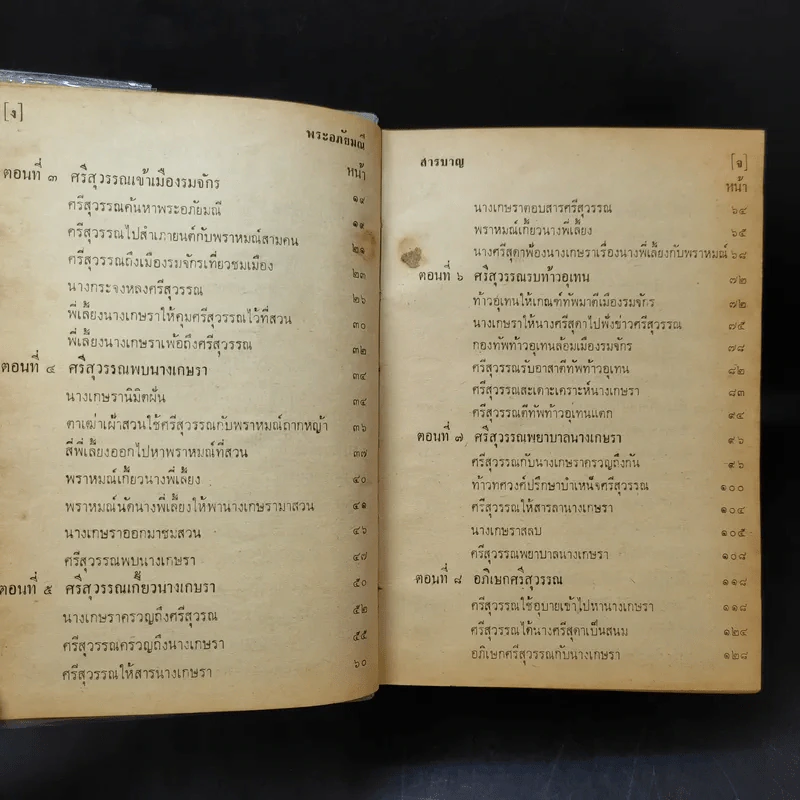 [ง]
พระอภัยมณี
หน้า
ตอนที่ ๓ ศรีสุวรรณเข้าเมืองรมจักร ๑๙
ศรีสุวรรณค้นหาพระอภัยมณี ๑๙
ศรีสุวรรณไปสำเภายนต์กับพราหมณ์สามคน ๒๑
ศรีสุวรรณถึงเมืองรมจักรเที่ยวชมเมือง ๒๓
นางกระจงหลงศรีสุวรรณ ๒๖
พี่เลี้ยงนางเกษราให้คุมศรีสุวรรณไว้ที่สวน ๓๐
พี่เลี้ยงนางเกษราเพ้อถึงศรีสุวรรณ ๓๒
ตอนที่ ๔ ศรีสุวรรณพบนางเกษรา ๓๔
นางเกษรานิมิตฝัน ๓๔
ตาเฒ่าเฝ้าสวนใช้ศรีสุวรรณกับพราหมณ์ถากหญ้า ๓๖
สี่พี่เลี้ยงออกไปหาพราหมณ์ที่สวน ๓๗
พราหมณ์เกี้ยวนางพี่เลี้ยง ๔๐
พราหมณ์นัดนางพี่เลี้ยงให้พานางเกษรามาสวน ๔๑
นางเกษราออกมาชมสวน ๔๖
ศรีสุวรรณพบนางเกษรา ๔๗
ตอนที่ ๕ ศรีสุวรรณเกี้ยวนางเกษรา ๕๐
นางเกษราครวญถึงศรีสุวรรณ ๕๒
ศรีสุวรรณครวญถึงนางเกษรา ๕๕
ศรีสุวรรณให้สารนางเกษรา ๖๐
สารบาญ [จ]
หน้า
นางเกษราตอบสารศรีสุวรรณ ๖๔
พราหมณ์เกี้ยวนางพี่เลี้ยง ๖๕
นางศรีสุดาฟ้องนางเกษราเรื่องนางพี่เลี้ยงกับพราหมณ์ ๖๘
ตอนที่ ๖ ศรีสุวรรณรบท้าวอุเทน ๗๒
ท้าวอุเทนให้เกณฑ์ทัพมาตีเมืองรมจักร ๗๒
นางเกษราให้นางศรีสุดาไปฟังข่าวศรีสุวรรณ ๗๕
กองทัพท้าวอุเทนล้อมเมืองรมจักร ๗๘
ศรีสุวรรณรับอาสาตีทัพท้าวอุเทน ๘๒
ศรีสุวรรณสะเดาะเคราะห์นางเกษรา ๘๓
ศรีสุวรรณตีทัพท้าวอุเทนแตก ๙๔
ตอนที่ ๗ ศรีสุวรรณพยาบาลนางเกษรา ๙๖
ศรีสุวรรณกับนางเกษราครวญถึงกัน ๙๖
ท้าวทศวงศ์ปรึกษาบำเหน็จศรีสุวรรณ ๑๐๐
ศรีสุวรรณให้สารลานางเกษรา ๑๐๔
นางเกษราสลบ ๑๐๕
ศรีสุวรรณพยาบาลนางเกษรา ๑๐๘
ตอนที่ ๘ อภิเษกศรีสุวรรณ ๑๑๘
ศรีสุวรรณใช้อุบายเข้าไปหานางเกษรา ๑๑๘
ศรีสุวรรณได้นางศรีสุดาเป็นสนม ๑๒๔
อภิเษกศรีสุวรรณกับนางเกษรา ๑๒๘